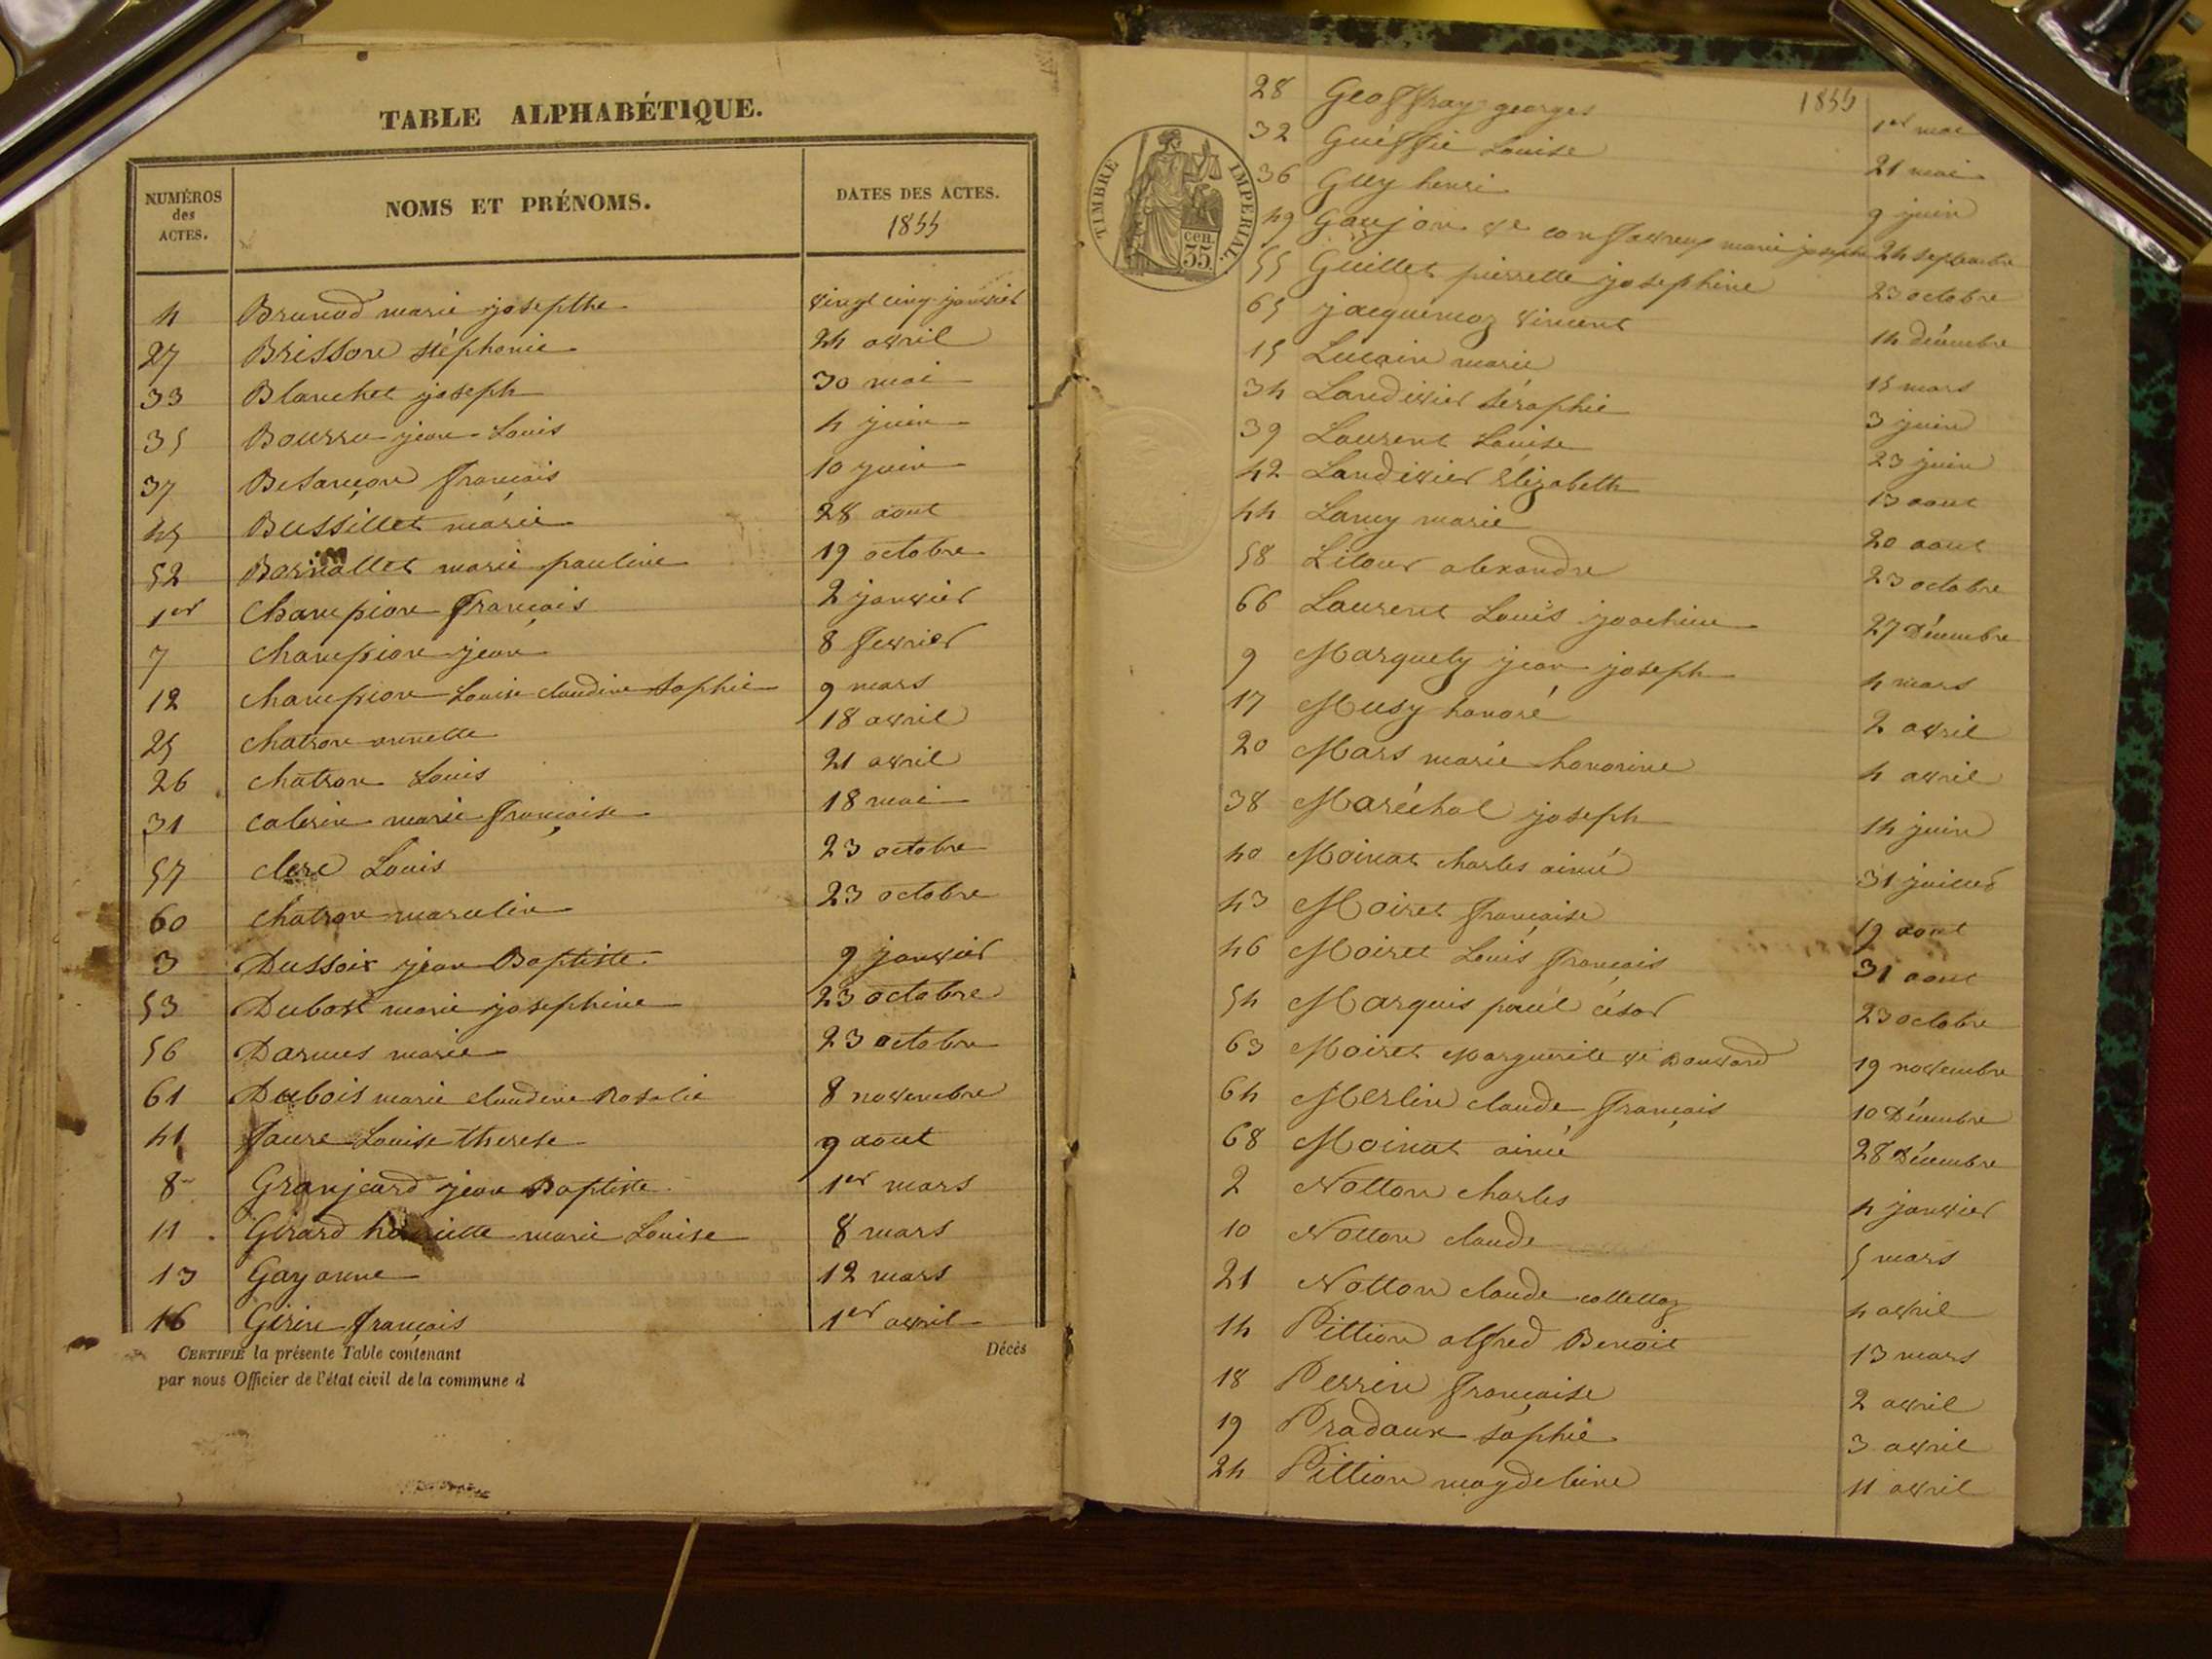 TABLE ALPHABÉTIQUE.
NUMÉROS des ACTES. NOMS ET PRÉNOMS. DATES DES ACTES. 1855
4 Brunod marie josepthe vingt cinq janvier
27 Brisson stéphanie 24 avril
33 Blanchet joseph 30 mai
35 Bourru jean Louis 4 juin
37 Besançon françois 10 juin
45 Bussillet marie 28 aout
52 marie pauline 19 octobre
1er Champion françois 2 janvier
7 Champion jean 8 fevrier
12 Champion Louise claudine Sophie 9 mars
25 Chatron annette 18 avril
26 Chatron Louis 21 avril
31 Caterin marie françoise 18 mai
57 Clerc Louis 23 octobre
60 Chatron marcelin 23 octobre
3 Dussoix jean Baptiste 9 janvier
53 Dubost marie josephine 23 octobre
56 Darmes marie 23 octobre
61 Dubois marie claudine Rosalie 8 novembre
41 faure Louise therese 9 aout
8 Granjeard jean Baptiste 1er mars
11 Girard henriette marie Louise 8 mars
13 Gay anne 12 mars
16 Girin françois 1er avril
CERTIFIÉ la présente Table contenant Décès
par nous Officier de l'état civil de la commune d
1855
TIMBRE IMPERIAL.
cen.
35
28 Geoffray georges 1er mai
32 Guéffié Louise 21 mai
36 Guy henri 9 juin
49 Goujon ve marie josephe 24 septembre
55 Guillet pierrette josephine 23 octobre
65 jacquemoz vincent 14 Décembre
15 Lucain marie 15 mars
34 Landivier séraphie 3 juin
39 Laurent Louise 23 juin
42 Landivier Elizabeth 13 aout
44 Lamy marie 20 aout
58 Litour alexandre 23 octobre
66 Laurent Louis joachim 27 Décembre
9 Marquety jean joseph 4 mars
17 Musy honoré 2 avril
20 Mars marie honorine 4 avril
38 Maréchal joseph 14 juin
40 Moinat charles aimé 31 juillet
43 Moiret françoise 19 aout
46 Moiret Louis françois 31 aout
54 Marquis paul césar 23 octobre
63 Moiret Marguerite ve Bouvard 19 novembre
64 Merlin claude françois 10 Décembre
68 Moinat aimé 28 Décembre
2 Notton charles 4 janvier
10 Notton claude 5 mars
21 Notton claude collettaz 4 avril
14 Pittion alfred Benoit 13 mars
18 Perrin françoise 2 avril
19 Pradaux sophie 3 avril
24 Pittion magdeleine 11 avril